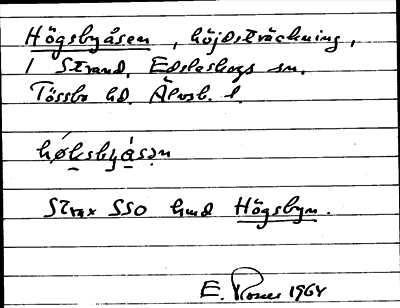 Högsbyåsen, höjdsträckning,
i Strand, Edsleskogs sn.
Tössbo hd. Älvsb. l.
høksbyásən
Strax SSO hmd Högsbyn.
E. 1964